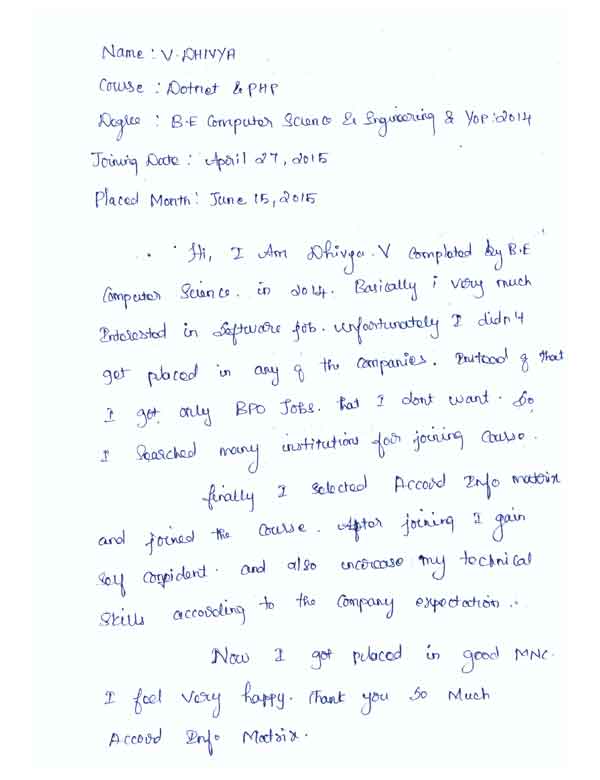 Name : V. DHIVYA
Course : Dotnet & PHP
Degree : B.E Computer Science & Engineering & YOP : 2014
Joining Date : April 27, 2015
Placed Month : June 15, 2015
Hi, I Am Dhivya. V Completed by B.E
Computer Science. in 2014. Basically i very much
Interested in Software job. Unfortunately I didn't
get placed in any of the Companies. Instead of that
I got only BPO Jobs. that I dont want. So
I Searched many institution for joining Course.
finally I selected Accord Info matrix
and joined the Course. After joining I gain
self confident. and also increase my technical
Skills according to the Company expectation..
Now I got placed in good MNC.
I feel very happy. Thank you So Much
Accord Info Matrix.